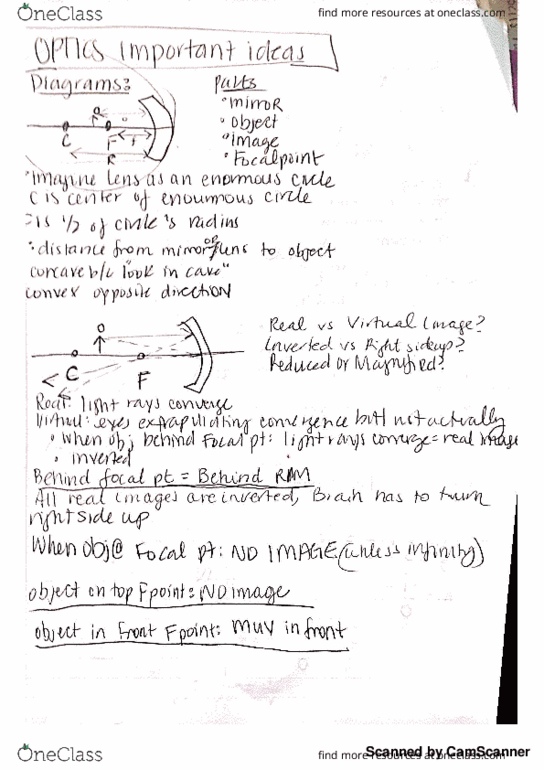 OneClass
find more resources at oneclass.com
OPTICS Important ideas
Diagrams:
Parts
• mirror
• object
• image
• Focalpoint
o
C
F
f
R
• Imagine lens as an enormous circle
C is center of enoumous circle
is 1/2 of circle's radius
• distance from mirror or lens to object
concave b/c look in cave"
convex opposite direction
O
C
F
Real vs Virtual Image?
Inverted vs Right sideup?
Reduced or Magnified?
Real: light rays converge
Virtual: eyes extrapulating convergence but not actually
• When obj behind Focal pt: light rays converge = real image
• inverted
Behind focal pt = Behind RIM
All real images are inverted, Brain has to turn
right side up
When obj@ Focal pt: NO IMAGE (unless infinity)
object on top Fpoint: NO image
object in front Fpoint: MUV in front
OneClass
find more resources at oneclass.com
Scanned by CamScanner